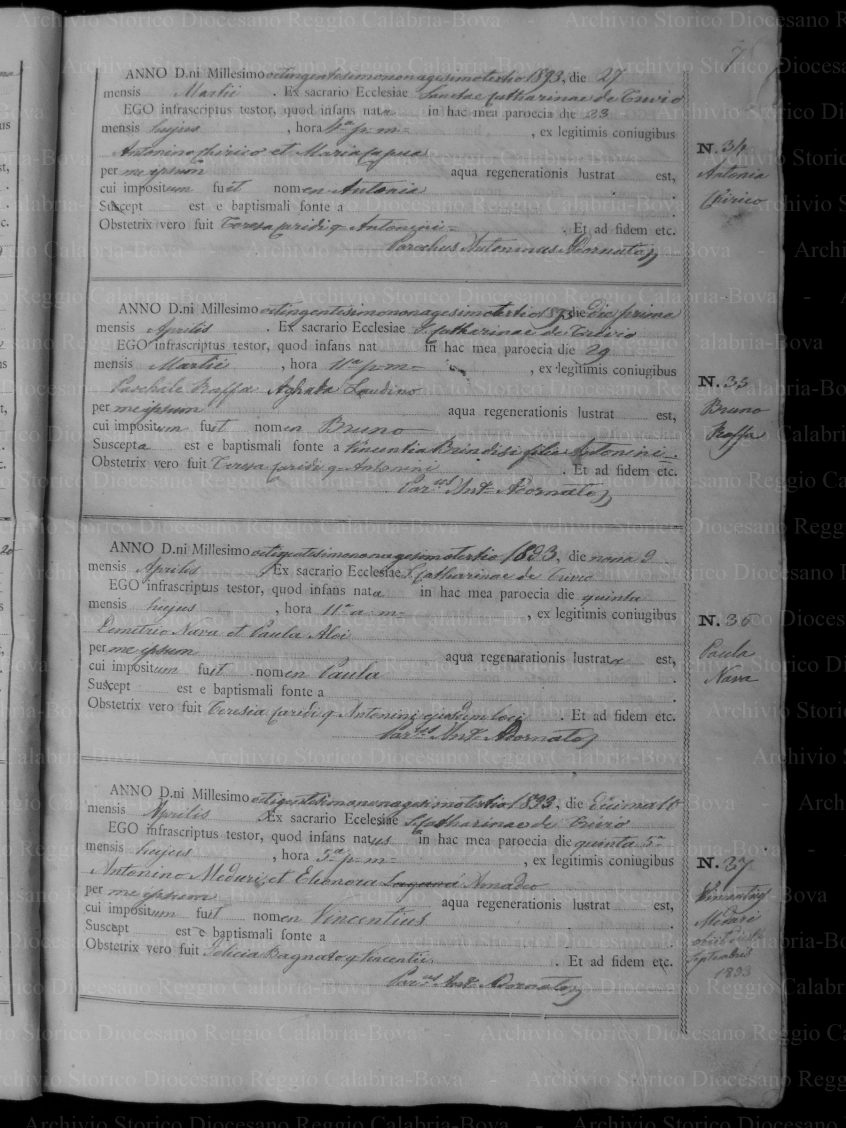 7
ANNO D.ni Millesimo octingentesimononagesimotertio 1893, die 27
mensis Martii . Ex sacrario Ecclesiae Sanctae Catharinae de Trivio
EGO infrascriptus testor, quod infans nata in hac mea paroecia die 23
mensis hujus , hora 4ª p. m. , ex legitimis coniugibus
Antonino Chirico et Maria Capua
per me ipsum aqua regenerationis lustrat est,
cui impositum fuit nomen Antonia
Suscept est e baptismali fonte a .
Obstetrix vero fuit Teresa Caridi q. Antonini . Et ad fidem etc.
Parochus Antoninus Adornato
N. 34
Antonia
Chirico
ANNO D.ni Millesimo octingentesimononagesimotertio 1893 die Die prima
mensis Aprilis . Ex sacrario Ecclesiae S. Catharinae de Trivio
EGO infrascriptus testor, quod infans nat in hac mea paroecia die 29
mensis Martii , hora 11ª p. m. , ex legitimis coniugibus
Paschale Raffa Aghata Laudino
per me ipsum aqua regenerationis lustrat est,
cui impositum fuit nomen Bruno
Suscepta est e baptismali fonte a Vincentia Brindisi filia Antonini .
Obstetrix vero fuit Teresa Caridi q. Antonini . Et ad fidem etc.
Par.us Ant. Adornato
N. 35
Bruno
Raffa
ANNO D.ni Millesimo octigentesimononagesimotertio 1893, die nona 9
mensis Aprilis . Ex sacrario Ecclesiae S. Catharinae de Trivio
EGO infrascriptus testor, quod infans nata in hac mea paroecia die quinta
mensis hujus , hora 11ª a. m. , ex legitimis coniugibus
Demetrio Nava et Paula Aloi
per me ipsum aqua regenarationis lustrata est,
cui impositum fuit nomen Paula
Suscept est e baptismali fonte a .
Obstetrix vero fuit Teresia Caridi q. Antonini ejusdem loci . Et ad fidem etc.
Par.us Ant. Adornato
N. 36
Paula
Nava
ANNO D.ni Millesimo octigentesimononagesimotertio 1893, die Decima 10
mensis Aprilis . Ex sacrario Ecclesiae S. Catharinae de Trivio
EGO infrascriptus testor, quod infans natus in hac mea paroecia die quinta 5
mensis hujus , hora 5ª p. m. , ex legitimis coniugibus
Antonino Meduri et Eleonora Laganà Amadeo
per me ipsum aqua regenerationis lustrat est,
cui impositum fuit nomen Vincentius
Suscept est e baptismali fonte a .
Obstetrix vero fuit Felicia Bagnato q. Vincentii . Et ad fidem etc.
Par.us Ant. Adornato
N. 37
Vincentius
Meduri
obiit die
Septembris
1893
Archivio Storico Diocesano Reggio Calabria-Bova